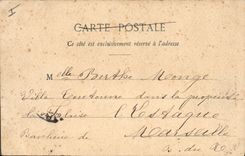 I
CARTE POSTALE
Ce côté est exclusivement réservé à l'adresse
Mlle Berthe Monge
Villa dans la propriété
l'Estaque
Banlieue de Marseille
B. du R.